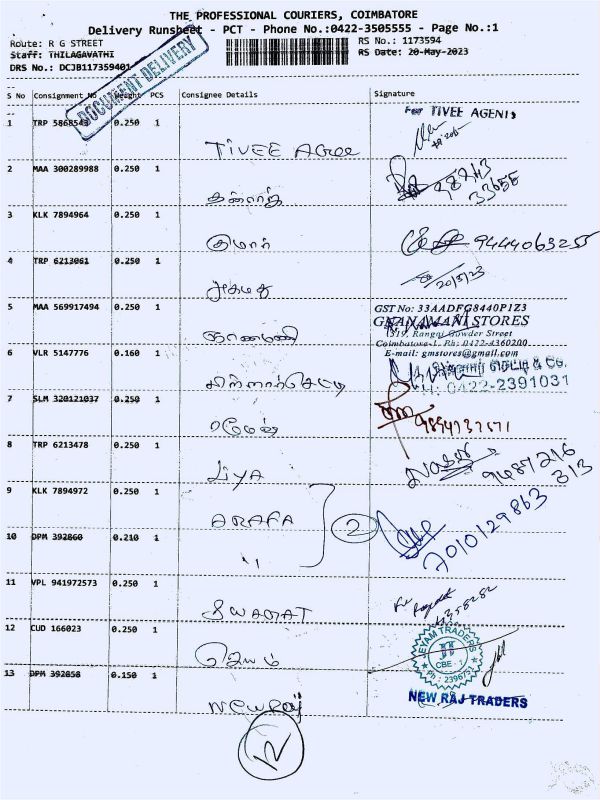 THE PROFESSIONAL COURIERS, COIMBATORE
Delivery Runsheet - PCT - Phone No.:0422-3505555 - Page No.:1
Route: R G STREET RS No.: 1173594
Staff: THILAGAVATHI RS Date: 20-May-2023
DRS No.: DCJB117359401
DOCUMENT DELIVERY
S No Consignment No Weight PCS Consignee Details Signature
1 TRP 5868543 0.250 1 TIVEE Agee For TIVEE AGENIS
2 MAA 300289988 0.250 1
3 KLK 7894964 0.250 1 குமார் 9444063255
4 TRP 6213061 0.250 1 அகமது 20/5/23
5 MAA 569917494 0.250 1 ஞானமணி
GST No: 33AADFG8440P1Z3
GNANAMANI STORES
319, Rangai Gowder Street
Coimbatore-1. Ph: 0422-4360200
E-mail: gmstores@gmail.com
6 VLR 5147776 0.160 1 & Co.
0422-2391031
7 SLM 320121037 0.250 1 ரமேஷ் 9894737571
8 TRP 6213478 0.250 1 LiYA 9487216
313
9 KLK 7894972 0.250 1 ARAFA
2
10 DPM 392860 0.210 1 " 7010129863
11 VPL 941972573 0.250 1 SWAGAT
12 CUD 166023 0.250 1 ஜெயம்
JEYAM TRADERS
CBE - 1
Ph : 2396751
13 DPM 392858 0.150 1 NEW Raj NEW RAJ TRADERS
12